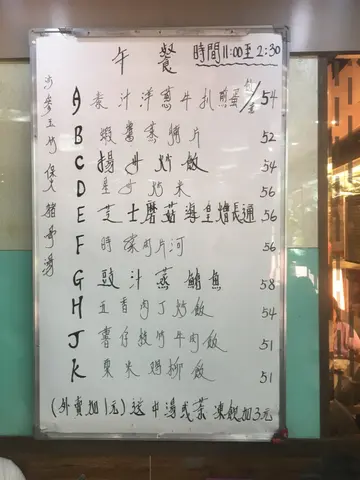 午餐 時間11:00至2:30
沙參玉竹保豬𦟌湯
A 表汁洋蔥牛扒煎蛋/飯 54
B 蝦醬蒸腩片 52
C 揚州炒飯 54
D 星州炒米 56
E 芝士磨菇海皇燴長通 56
F 時菜肉片河 56
G 豉汁蒸鯆魚 58
H 五香肉丁炒飯 54
J 薯仔枝竹牛肉飯 51
K 粟米鸡柳飯 51
(外賣加1元)送中湯或茶 凍飲加3元